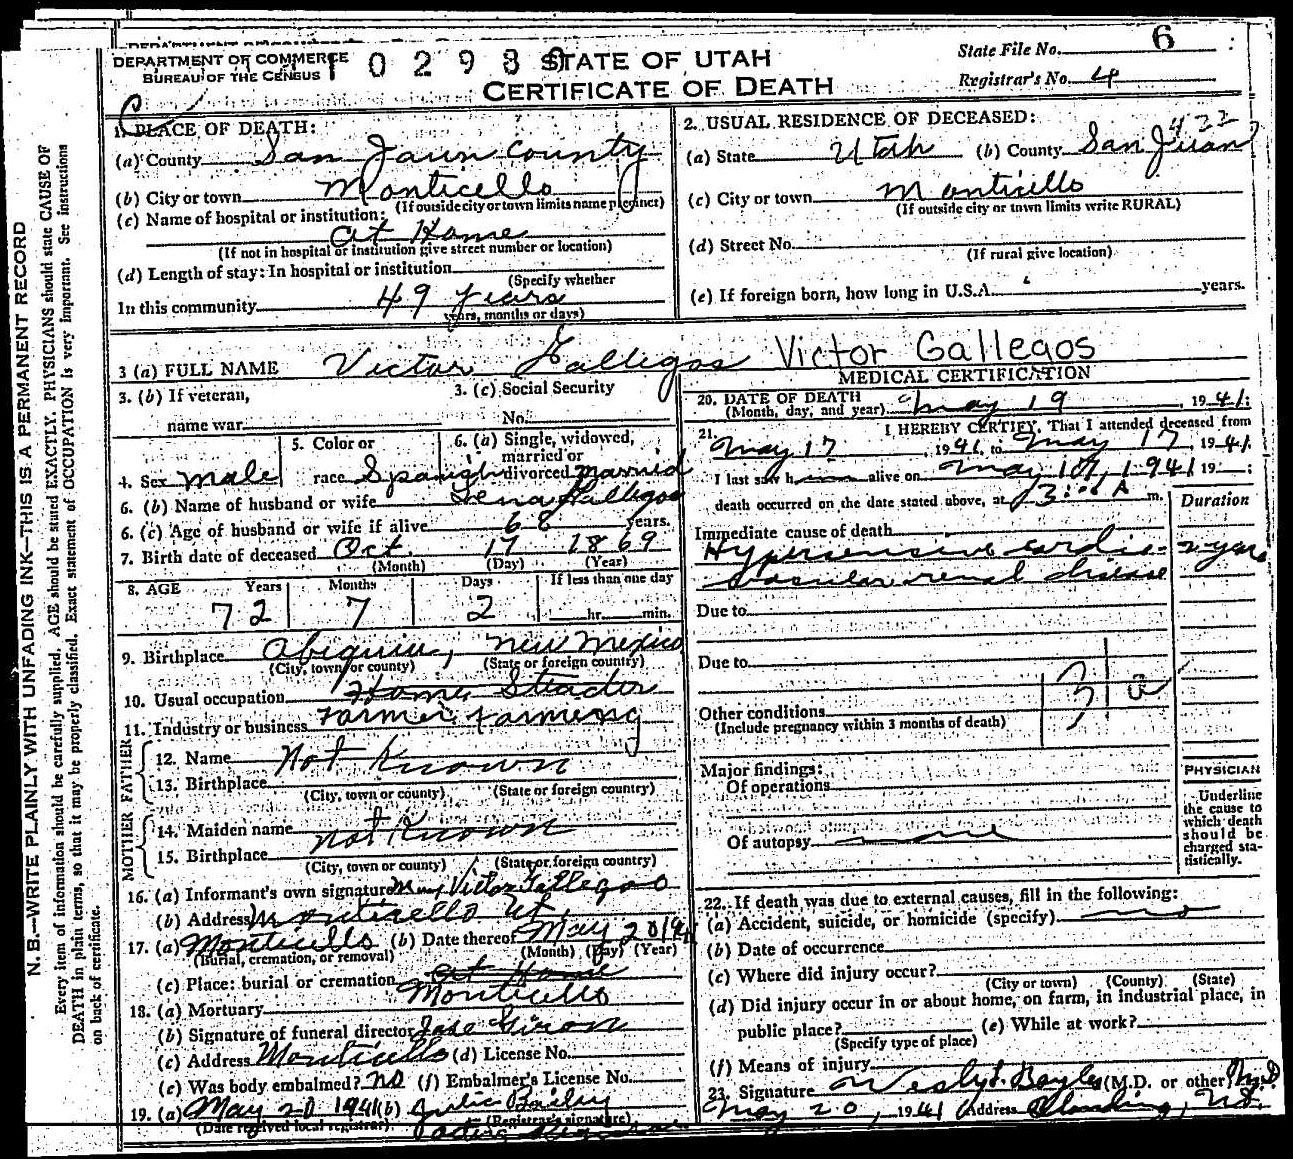 DEPARTMENT OF COMMERCE
BUREAU OF THE CENSUS
10 2 9 3 0 STATE OF UTAH
CERTIFICATE OF DEATH
State File No. 6
Registrar's No. 4
1. PLACE OF DEATH:
(a) County San Jaun County
(b) City or town Monticello
(If outside city or town limits name precinct)
(c) Name of hospital or institution:
at Home
(If not in hospital or institution give street number or location)
(d) Length of stay: In hospital or institution
(Specify whether
In this community 49 years
years, months or days)
2. USUAL RESIDENCE OF DECEASED: 422
(a) State Utah (b) County San Juan
(c) City or town Monticello
(If outside city or town limits write RURAL)
(d) Street No.
(If rural give location)
(e) If foreign born, how long in U.S.A. years.
3 (a) FULL NAME Victor Gallegos Victor Gallegos
3. (b) If veteran,
name war
3. (c) Social Security
No.
4. Sex male
5. Color or
race Spanish
6. (a) Single, widowed,
married or
divorced married
6. (b) Name of husband or wife Gallegos
6. (c) Age of husband or wife if alive 68 years.
7. Birth date of deceased Oct. 17 1869
(Month) (Day) (Year)
8. AGE Years Months Days If less than one day
72 7 2 hr. min.
9. Birthplace Abiquiu, New Mexico
(City, town or county) (State or foreign country)
10. Usual occupation Home Steader
11. Industry or business Farmer Farming
FATHER
12. Name Not Known
13. Birthplace
(City, town or county) (State or foreign country)
MOTHER
14. Maiden name not Known
15. Birthplace
(City, town or county) (State or foreign country)
16. (a) Informant's own signature Victor Gallegos
(b) Address Monticello Ut.
17. (a) Monticello (b) Date thereof May 20 1941
(Burial, cremation, or removal) (Month) (Day) (Year)
(c) Place: burial or cremation at Home
Monticello
18. (a) Mortuary
(b) Signature of funeral director Jose Giron
(c) Address Monticello (d) License No.
(e) Was body embalmed? no (f) Embalmer's License No.
19. (a) May 20 1941 (b) Julia Bailey
(Date received local registrar) (Registrar's signature)
MEDICAL CERTIFICATION
20. DATE OF DEATH
(Month, day, and year) May 19, 1941;
21. I HEREBY CERTIFY, That I attended deceased from
May 17, 1941, to May 17, 1941
I last saw him alive on May 17, 1941 19 ;
death occurred on the date stated above, at A m.
Duration
Immediate cause of death
Hypersensive cardio- 2 years
vascular renal disease
Due to
Due to
Other conditions
(Include pregnancy within 3 months of death)
Major findings:
Of operations
Of autopsy
PHYSICIAN
Underline
the cause to
which death
should be
charged sta-
tistically.
22. If death was due to external causes, fill in the following:
(a) Accident, suicide, or homicide (specify) no
(b) Date of occurrence
(c) Where did injury occur?
(City or town) (County) (State)
(d) Did injury occur in or about home, on farm, in industrial place, in
public place? (e) While at work?
(Specify type of place)
(f) Means of injury
23. Signature Bayles (M.D. or other) M.D.
May 20, 1941 Address Blanding, Ut.
N. B.—WRITE PLAINLY WITH UNFADING INK—THIS IS A PERMANENT RECORD
Every item of information should be carefully supplied. AGE should be stated EXACTLY. PHYSICIANS should state CAUSE OF
DEATH in plain terms, so that it may be properly classified. Exact statement of OCCUPATION is very important. See instructions
on back of certificate.